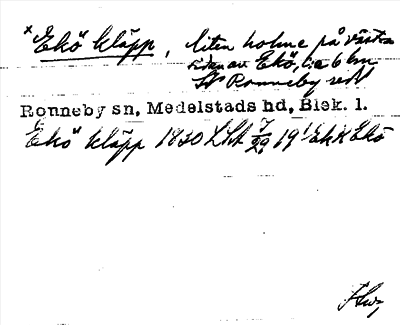 × Ekö kläpp, liten holme på västra
sidan av Ekö, c:a 6 km
Ronneby redd
Ronneby sn, Medelstads hd, Blek. l.
Ekö kläpp 1850 LSA 7/29 19¹ Ek K Ekö